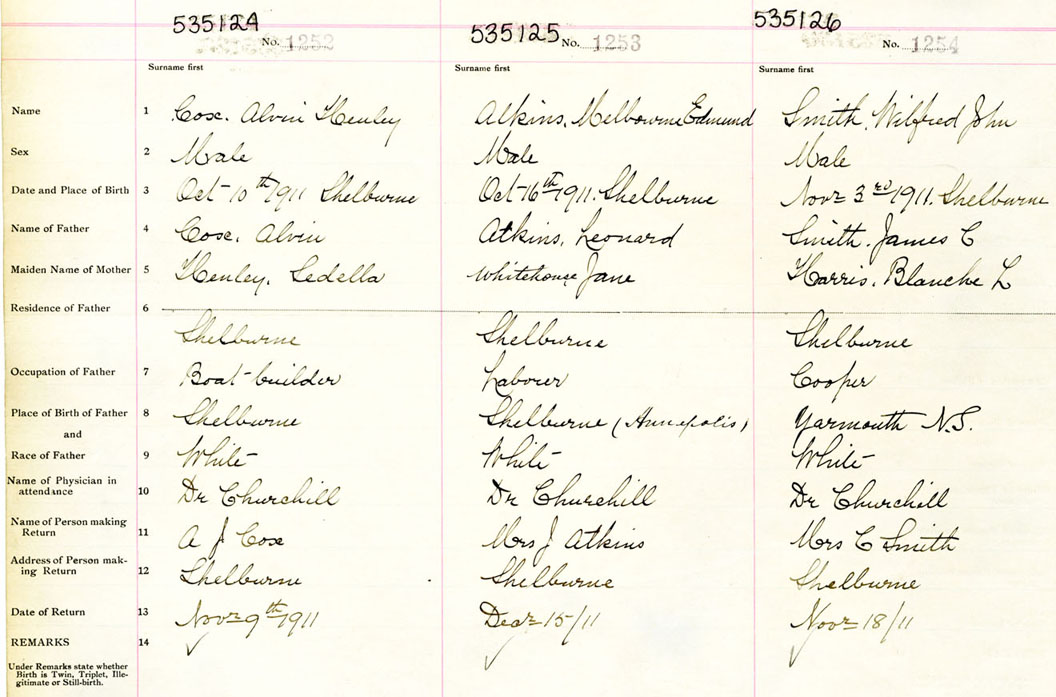 535124 535125 535126
No. 1252 No. 1253 No. 1254
Surname first Surname first Surname first
Name 1 Cox. Alvin Henley Atkins. Melbourne Edmund Smith. Wilfred John
Sex 2 Male Male Male
Date and Place of Birth 3 Oct 10th 1911 Shelburne Oct 16th 1911. Shelburne Novr 3rd 1911. Shelburne
Name of Father 4 Cox. Alvin Atkins. Leonard Smith. James C
Maiden Name of Mother 5 Henley. Ledella Whitehouse Jane Harris. Blanche L
Residence of Father 6
Shelburne Shelburne Shelburne
Occupation of Father 7 Boat-builder Labourer Cooper
Place of Birth of Father 8 Shelburne Shelburne (Annapolis) Yarmouth N.S.
and
Race of Father 9 White White White
Name of Physician in
attendance 10 Dr Churchill Dr Churchill Dr Churchill
Name of Person making
Return 11 A J Cox Mrs J Atkins Mrs C Smith
Address of Person mak-
ing Return 12 Shelburne Shelburne Shelburne
Date of Return 13 Novr 9th 1911 Decr 15/11 Novr 18/11
REMARKS 14
Under Remarks state whether
Birth is Twin, Triplet, Ille-
gitimate or Still-birth.